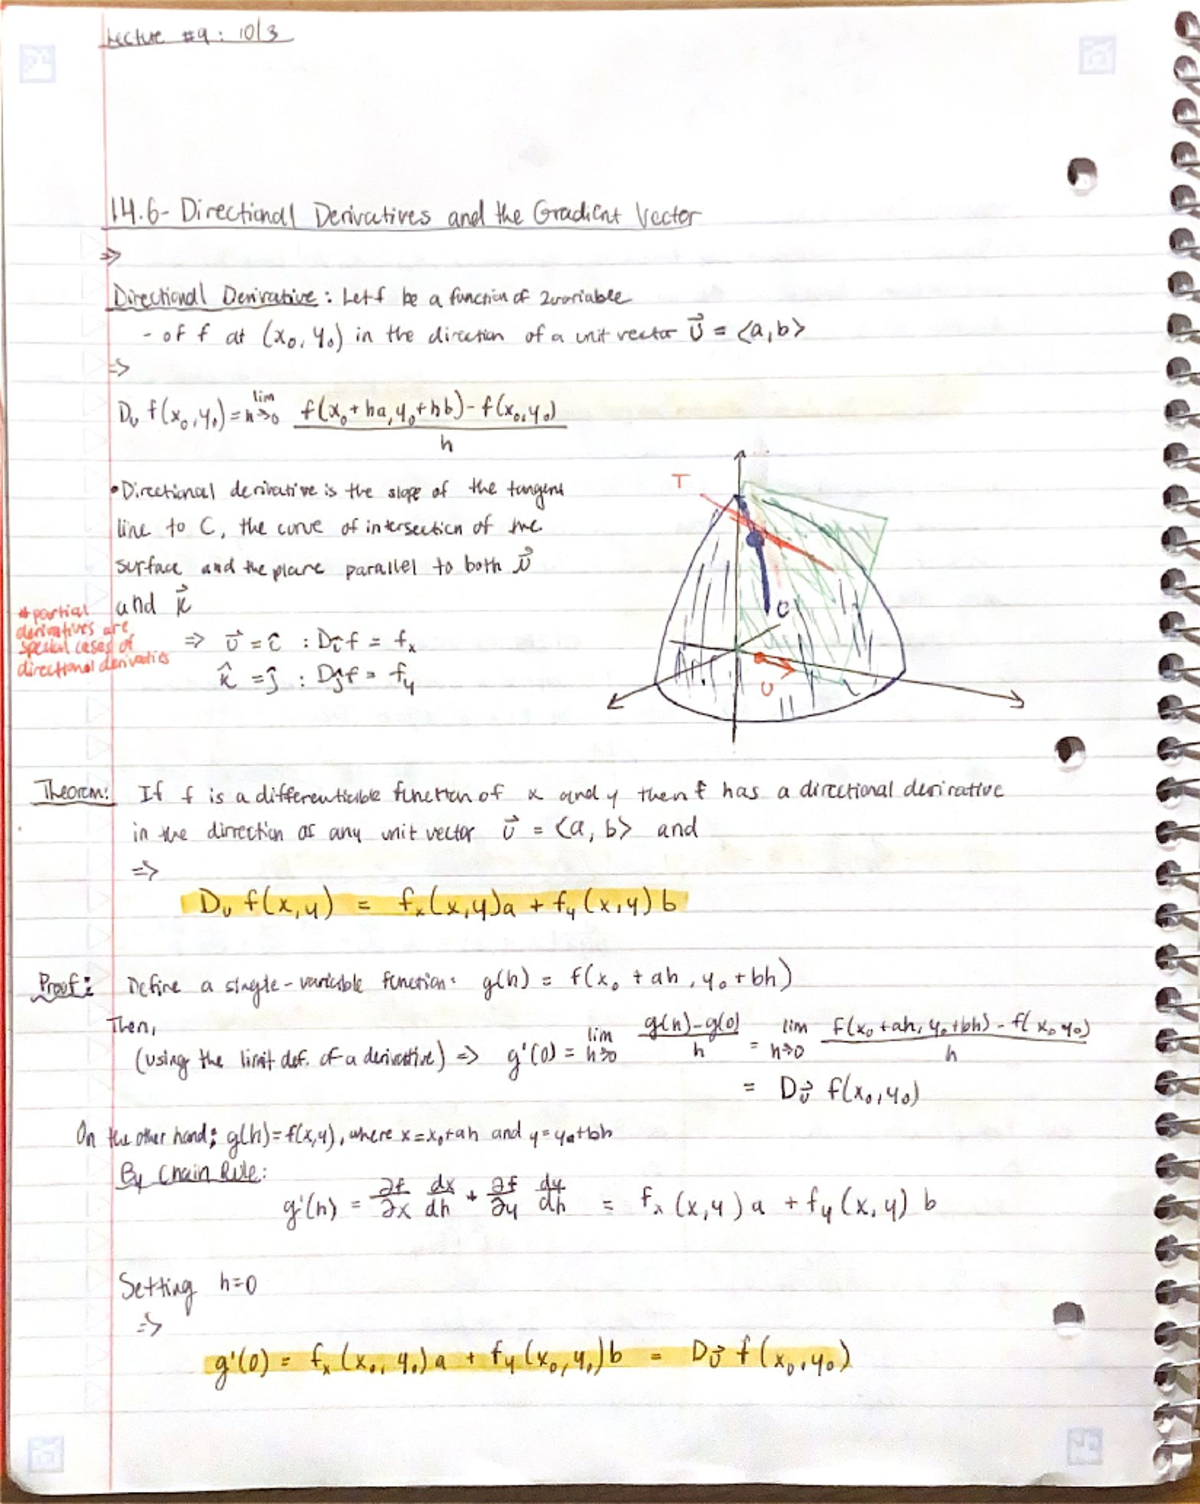 Lecture #9: 10/3
14.6- Directional Derivatives and the Gradient Vector
⇒
Directional Derivative: Let f be a function of 2 variable
- of f at (x₀, y₀) in the direction of a unit vector u⃗ = <a, b>
⇒
Dᵤ f(x₀, y₀) = lim h→0 f(x₀ + ha, y₀ + hb) - f(x₀, y₀) / h
• Directional derivative is the slope of the tangent
line to C, the curve of intersection of the
surface and the plane parallel to both u⃗
and k⃗
* partial
derivatives are
special cases of
directional derivatives
⇒ u⃗ = î : Dî f = fₓ
k̂ = ĵ : Dĵ f = f_y
T
C
U
Theorem: If f is a differentiable function of x and y then f has a directional derivative
in the direction of any unit vector u⃗ = <a, b> and
⇒
Dᵤ f(x, y) = fₓ(x, y)a + f_y(x, y)b
Proof: Define a single-variable function: g(h) = f(x₀ + ah, y₀ + bh)
Then,
(using the limit def. of a derivative) ⇒ g'(0) = lim h→0 g(h) - g(0) / h = lim h→0 f(x₀ + ah, y₀ + bh) - f(x₀ y₀) / h
= Du⃗ f(x₀, y₀)
On the other hand; g(h) = f(x, y), where x = x₀ + ah and y = y₀ + bh
By Chain Rule:
g'(h) = ∂f/∂x dx/dh + ∂f/∂y dy/dh = fₓ(x, y)a + f_y(x, y)b
Setting h=0
⇒
g'(0) = fₓ(x₀, y₀)a + f_y(x₀, y₀)b = Du⃗ f(x₀, y₀)